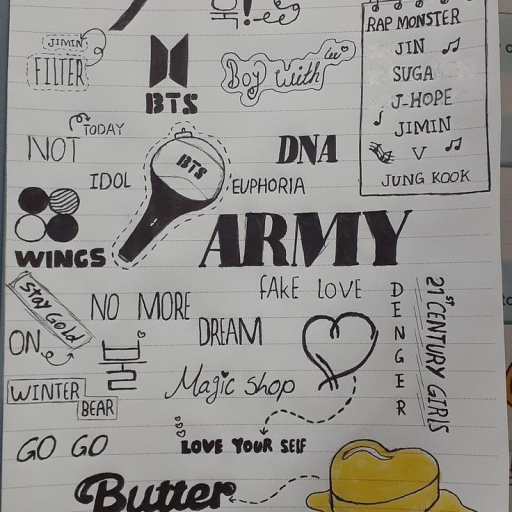 RAP MONSTER
JIN
SUGA
J-HOPE
JIMIN
V
JUNG KOOK
JIMIN
FILTER
BTS
Boy With
TODAY
NOT
BTS
DNA
IDOL
EUPHORIA
WINGS
ARMY
Stay Gold
NO MORE
DREAM
FAKE LOVE
DENGER
21st CENTURY GIRLS
ON
봄
Magic Shop
WINTER
BEAR
GO GO
LOVE YOUR SELF
Butter